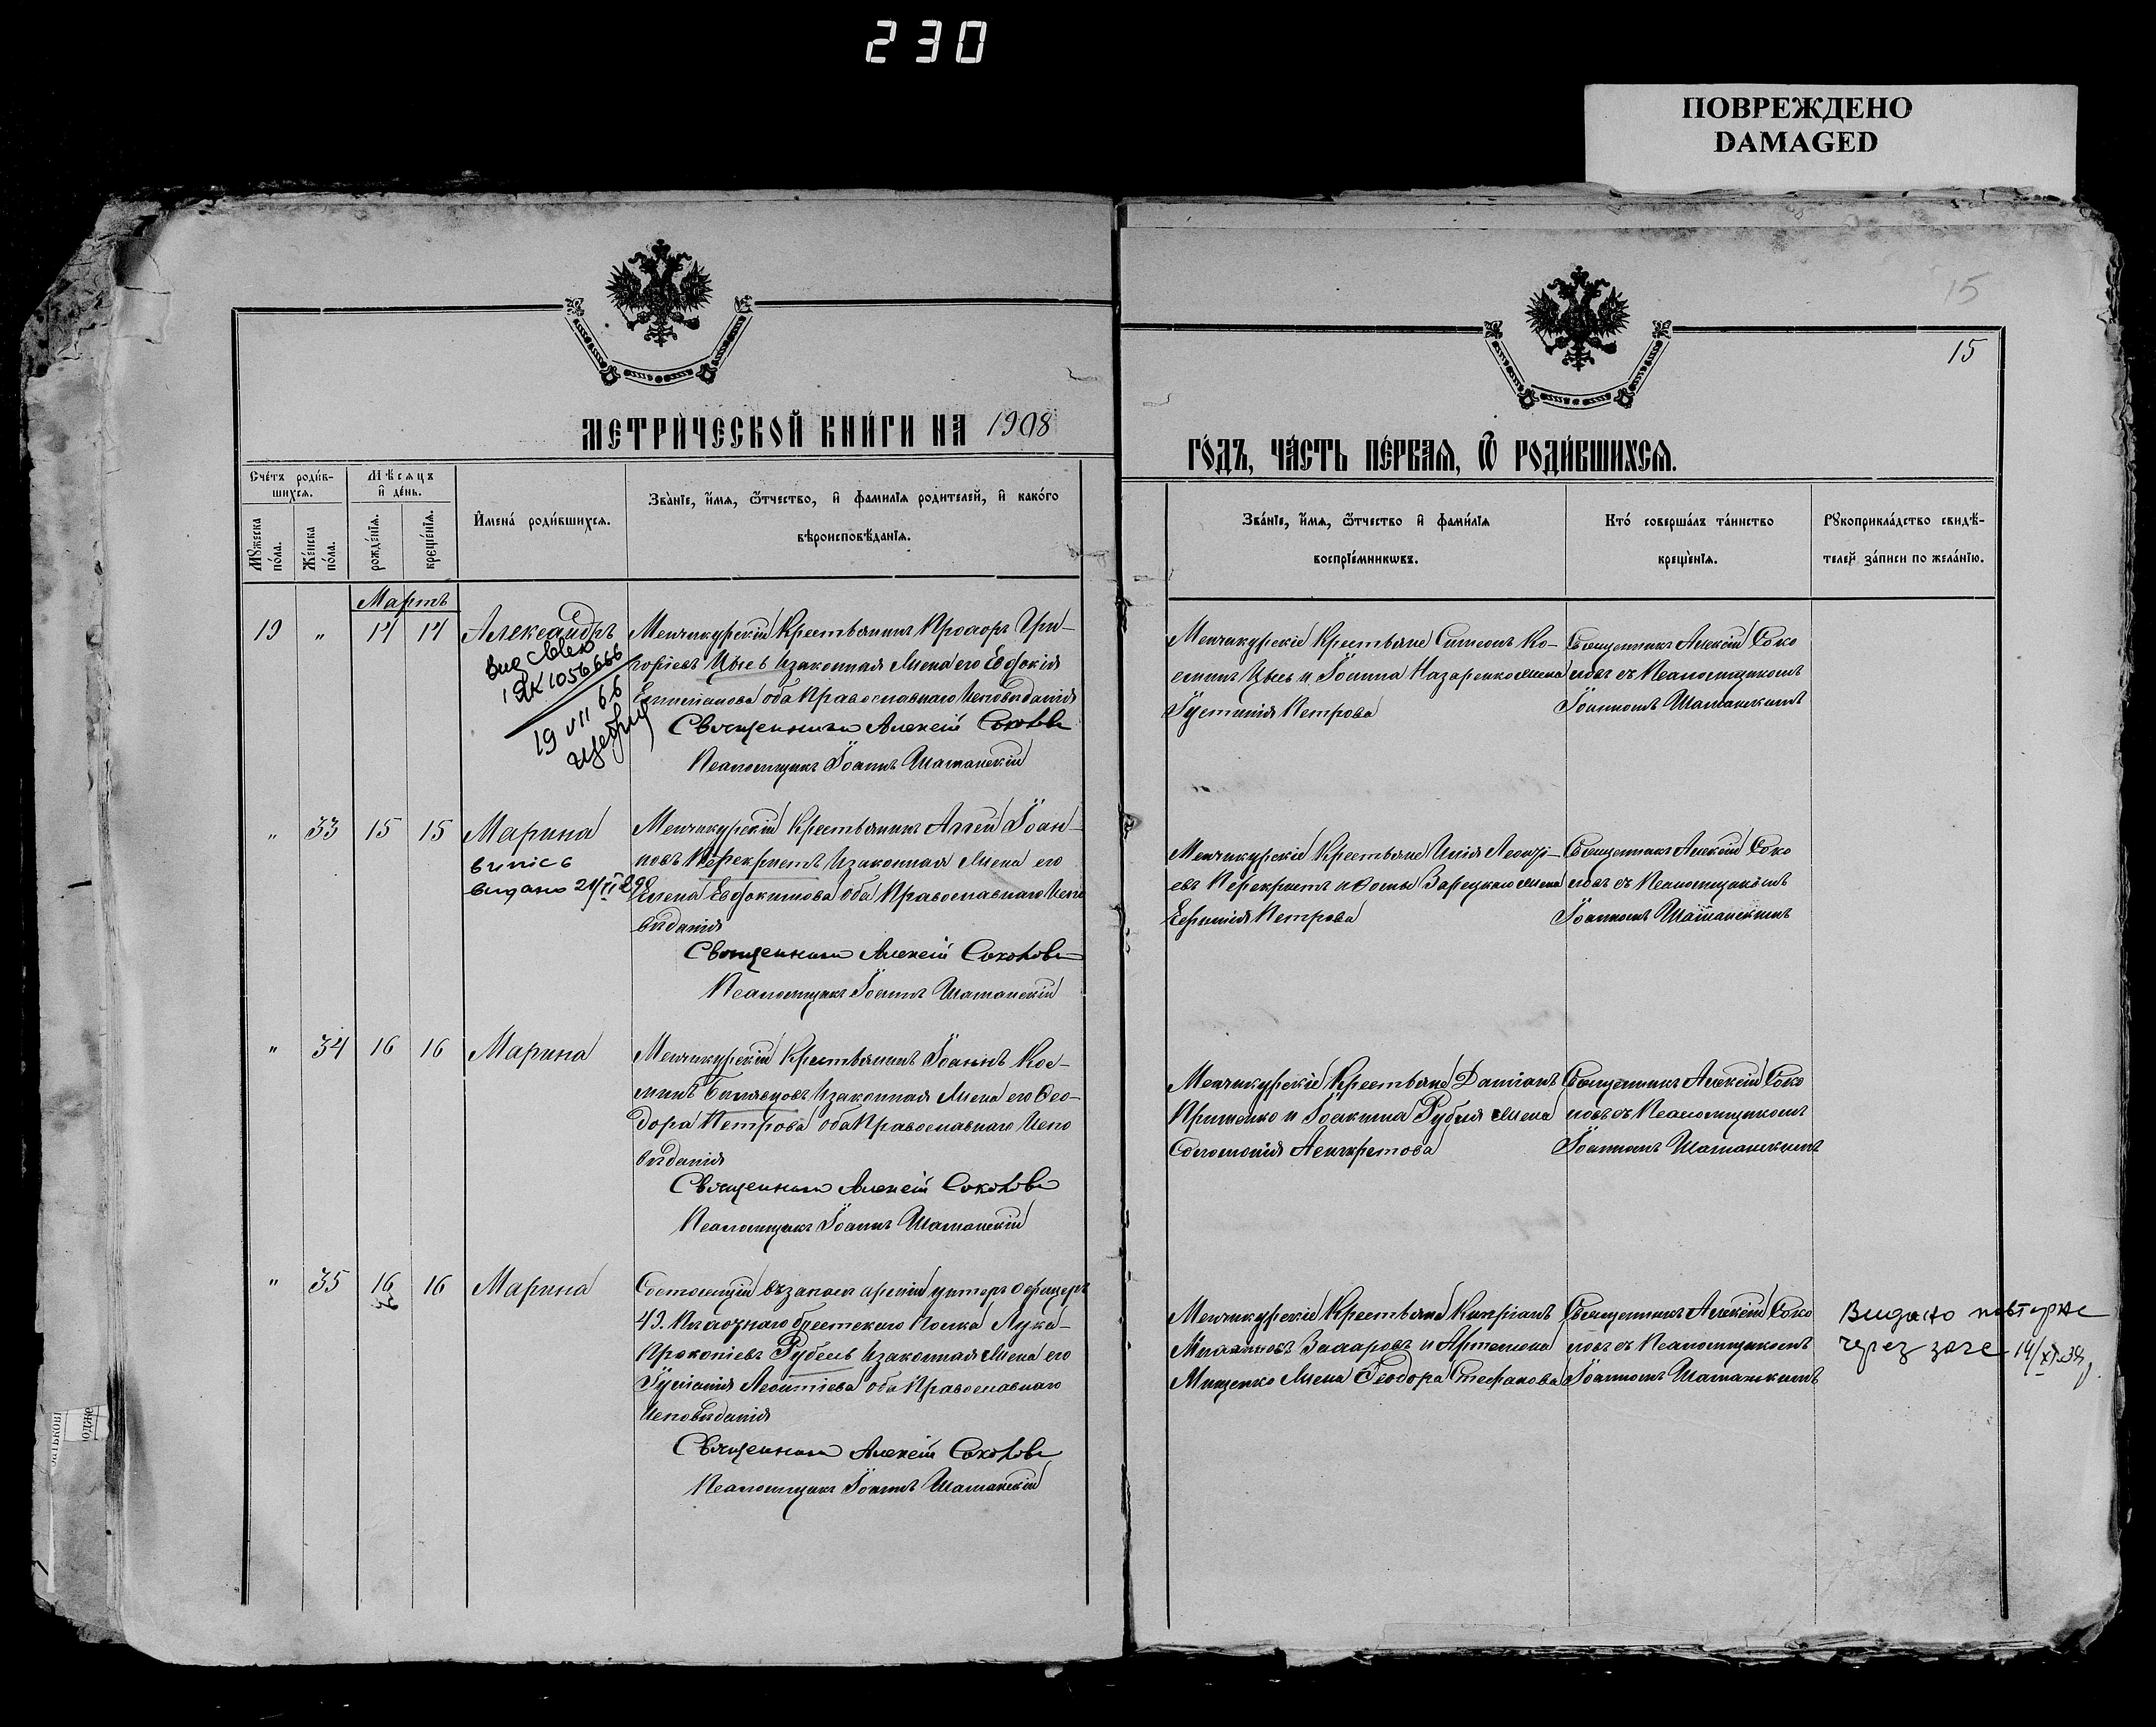 230
ПОВРЕЖДЕНО
DAMAGED
15
15
МЕТРИ́ЧЕСКОЙ КНИ́ГИ НА 1908
ГО́ДЪ, ЧА́СТЬ ПЕ́РВАѦ, Ѽ РОДИ́ВШИХСѦ.
Сче́тъ роди́в-
шихсѧ.
Мѣсѧцъ
и̂ де́нь.
И̂мена́ роди́вшихсѧ.
Зва́нїе, и̂мѧ, ѻ҆́тчество, и̂ фамилїѧ родителей, и̂ како́го
вѣроисповѣ́данїѧ.
Мꙋжеска
по́ла.
Же́нска
по́ла.
рожде́нїѧ.
креще́нїѧ.
Зва́нїе, и̂мѧ, ѻ҆́тчество и̂ фами́лїѧ
воспрїе́мникѡвъ.
Кто́ соверша́лъ та́инство
креще́нїѧ.
Рꙋкоприкла́дство свидѣ́-
телей за́писи по жела́нїю.
Мартъ
19 " 14 14 Александръ
19 VII 66
Менчикурскій Крестьянинъ Прохоръ Гри-
горіевъ Цысь и законная жена его Евдокія
оба Православнаго Исповѣданія
Священникъ Алексій Соколовъ
Псаломщикъ Іоаннъ Шаманскій
Менчикурскіе Крестьяне Симеонъ Ко-
сминъ Цысь и Іоанна Назаренко жена
Іустинія Петрова
Священникъ Алексій Соко
ловъ съ Псаломщикомъ
Іоанномъ Шаманскимъ
" 33 15 15 Марина
випісь
видано
Менчикурскій Крестьянинъ Аггей Іоан-
новъ Перекрестъ и законная жена его
Елена Евфокимова оба Православнаго Испо
вѣданія
Священникъ Алексій Соколовъ
Псаломщикъ Іоаннъ Шаманскій
Менчикурскіе Крестьяне Илія Леонті-
евъ Перекрестъ и Фомы Зарецкаго жена
Евфимія Петрова
Священникъ Алексій Соко
ловъ съ Псаломщикомъ
Іоанномъ Шаманскимъ
" 34 16 16 Марина
Менчикурскій Крестьянинъ Іоаннъ Кос-
минъ и законная жена его Фео-
дора Петрова оба Православнаго Испо
вѣданія
Священникъ Алексій Соколовъ
Псаломщикъ Іоаннъ Шаманскій
Менчикурскіе Крестьяне Даміанъ
и Іоакима Рубля жена
Соломонія
Священникъ Алексій Соко
ловъ съ Псаломщикомъ
Іоанномъ Шаманскимъ
" 35 16 16 Марина
Состоящій въ запасѣ арміи унтеръ офицеръ
49. Пѣхотнаго Брестскаго Полка Лука
Прокопіевъ Рубель и законная жена его
Іуліанія Леонтіева оба Православнаго
Исповѣданія
Священникъ Алексій Соколовъ
Псаломщикъ Іоаннъ Шаманскій
Менчикурскіе Крестьяне Кипріанъ
Захаровъ и Артемона
Мищенко жена Феодора Стефанова
Священникъ Алексій Соко
ловъ съ Псаломщикомъ
Іоанномъ Шаманскимъ
Видано повторне
через загс